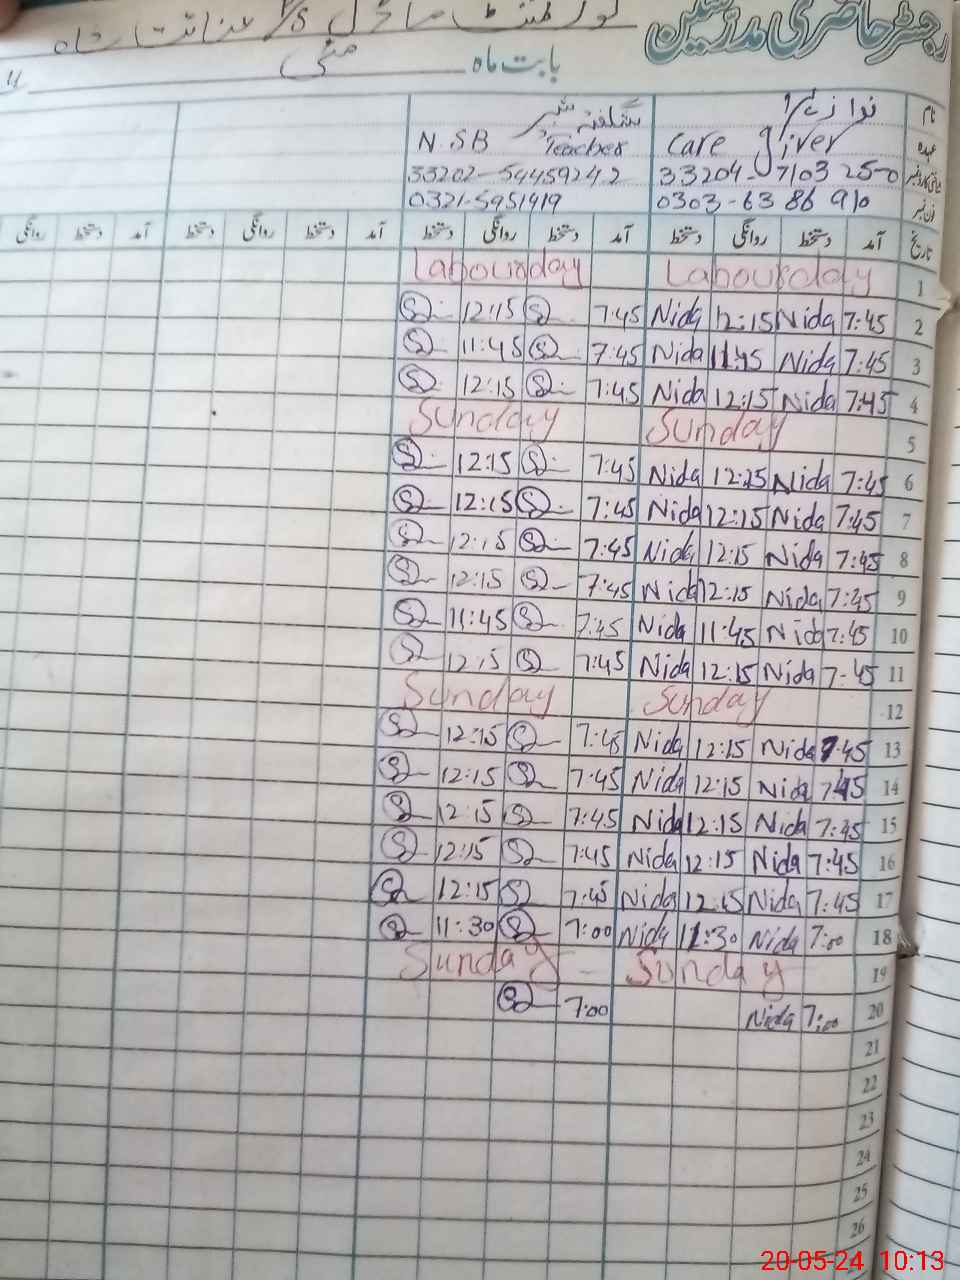 رجسٹر حاضری مدرسین
بابت ماہ مئی
نام
عہدہ Care giver Teacher N.SB
33204-7103250 33202-54459242
فون نمبر 0303-6386910 0321-5951419
تاریخ آمد دستخط روانگی دستخط آمد دستخط روانگی دستخط آمد دستخط روانگی دستخط آمد دستخط روانگی
1 Labourday Labourday
2 7:45 Nida 12:15 Nida 7:45 12:15
3 7:45 Nida 11:45 Nida 7:45 11:45
4 7:45 Nida 12:15 Nida 7:45 12:15
5 Sunday Sunday
6 7:45 Nida 12:25 Nida 7:45 12:15
7 7:45 Nida 12:15 Nida 7:45 12:15
8 7:45 Nida 12:15 Nida 7:45 12:15
9 7:45 Nida 12:15 Nida 7:45 12:15
10 7:45 Nida 11:45 Nida 7:45 11:45
11 7:45 Nida 12:15 Nida 7:45 12:15
12 Sunday Sunday
13 7:45 Nida 12:15 Nida 7:45 12:15
14 7:45 Nida 12:15 Nida 7:45 12:15
15 7:45 Nida 12:15 Nida 7:45 12:15
16 7:45 Nida 12:15 Nida 7:45 12:15
17 7:45 Nida 12:15 Nida 7:45 12:15
18 7:00 Nida 11:30 Nida 7:00 11:30
19 Sunday Sunday
20 7:00 Nida 7:00
21
22
23
24
25
26
20-05-24 10:13